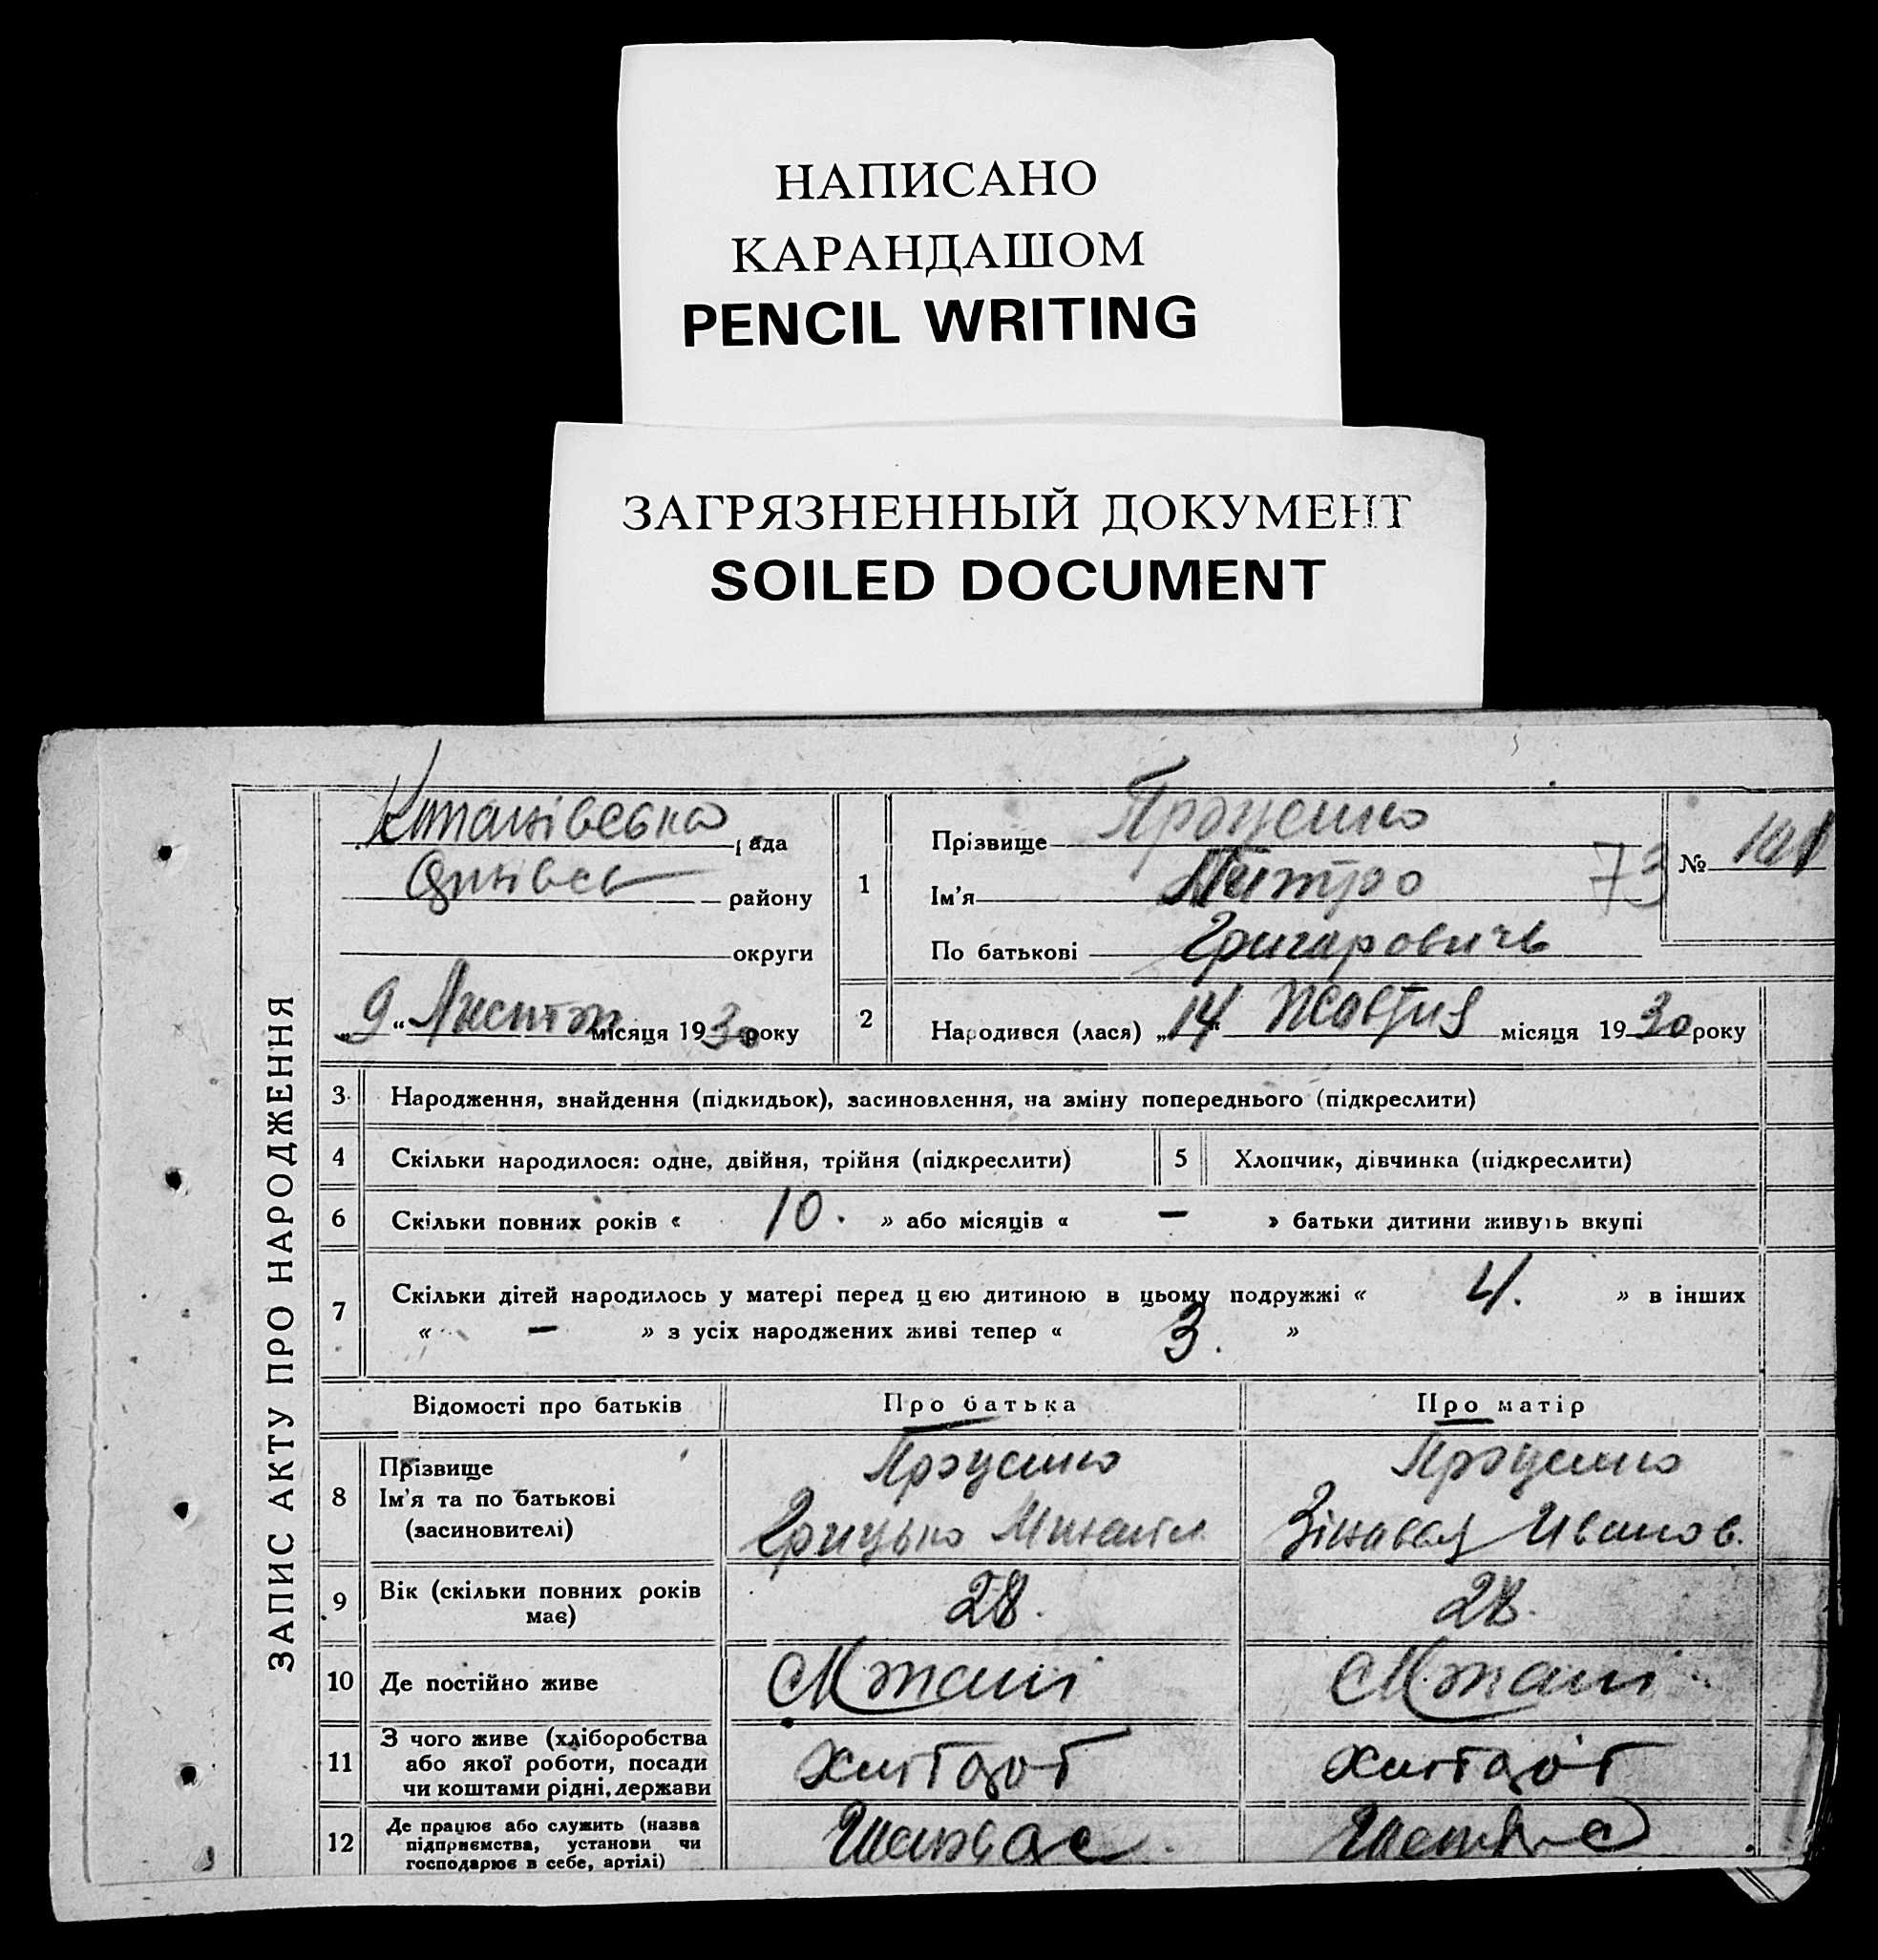 НАПИСАНО
КАРАНДАШОМ
PENCIL WRITING
ЗАГРЯЗНЕННЫЙ ДОКУМЕНТ
SOILED DOCUMENT
ЗАПИС АКТУ ПРО НАРОДЖЕННЯ
рада
району
округи
„9“ Листоп місяця 1930 року
1
Прізвище Проценко
Ім'я Петро
По батькові Григарович
73
№ 101
2
Народився (лася) „14“ Жовтня місяця 1930 року
3 Народження, знайдення (підкидьок), засиновлення, на зміну попереднього (підкреслити)
4 Скільки народилося: одне, двійня, трійня (підкреслити)
5 Хлопчик, дівчинка (підкреслити)
6 Скільки повних років « 10. » або місяців « – » батьки дитини живуть вкупі
7 Скільки дітей народилось у матері перед цією дитиною в цьому подружжі « 4. » в інших
« – » з усіх народжених живі тепер « 3. »
Відомості про батьків
Про батька
Про матір
8 Прізвище
Ім'я та по батькові
(засиновителі)
Проценко
Грицько Михайл
Проценко
Зінавея Иванов.
9 Вік (скільки повних років
має)
28.
28.
10 Де постійно живе
11 З чого живе (хліборобства
або якої роботи, посади
чи коштами рідні, держави
12 Де працює або служить (назва
підприємства, установи чи
господарює в себе, артілі)